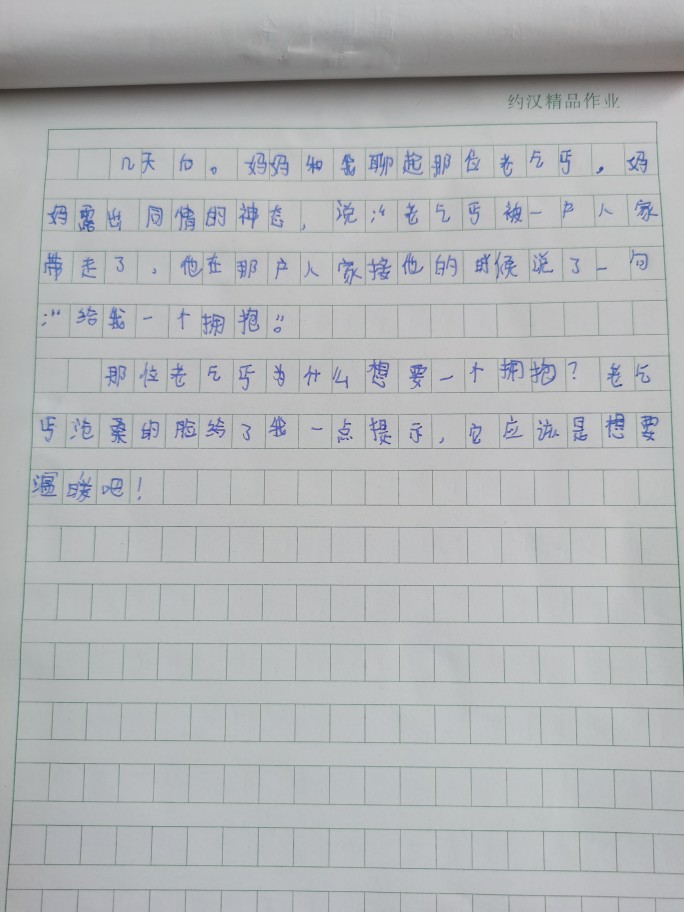 约汉精品作业
几天后。妈妈和我聊起那位老乞丐，妈
妈露出同情的神态，说：“老乞丐被一户人家
带走了，他在那户人家接他的时候说了一句
：“给我一个拥抱。”
那位老乞丐为什么想要一个拥抱？老乞
丐沧桑的脸给了我一点提示，它应该是想要
温暖吧！